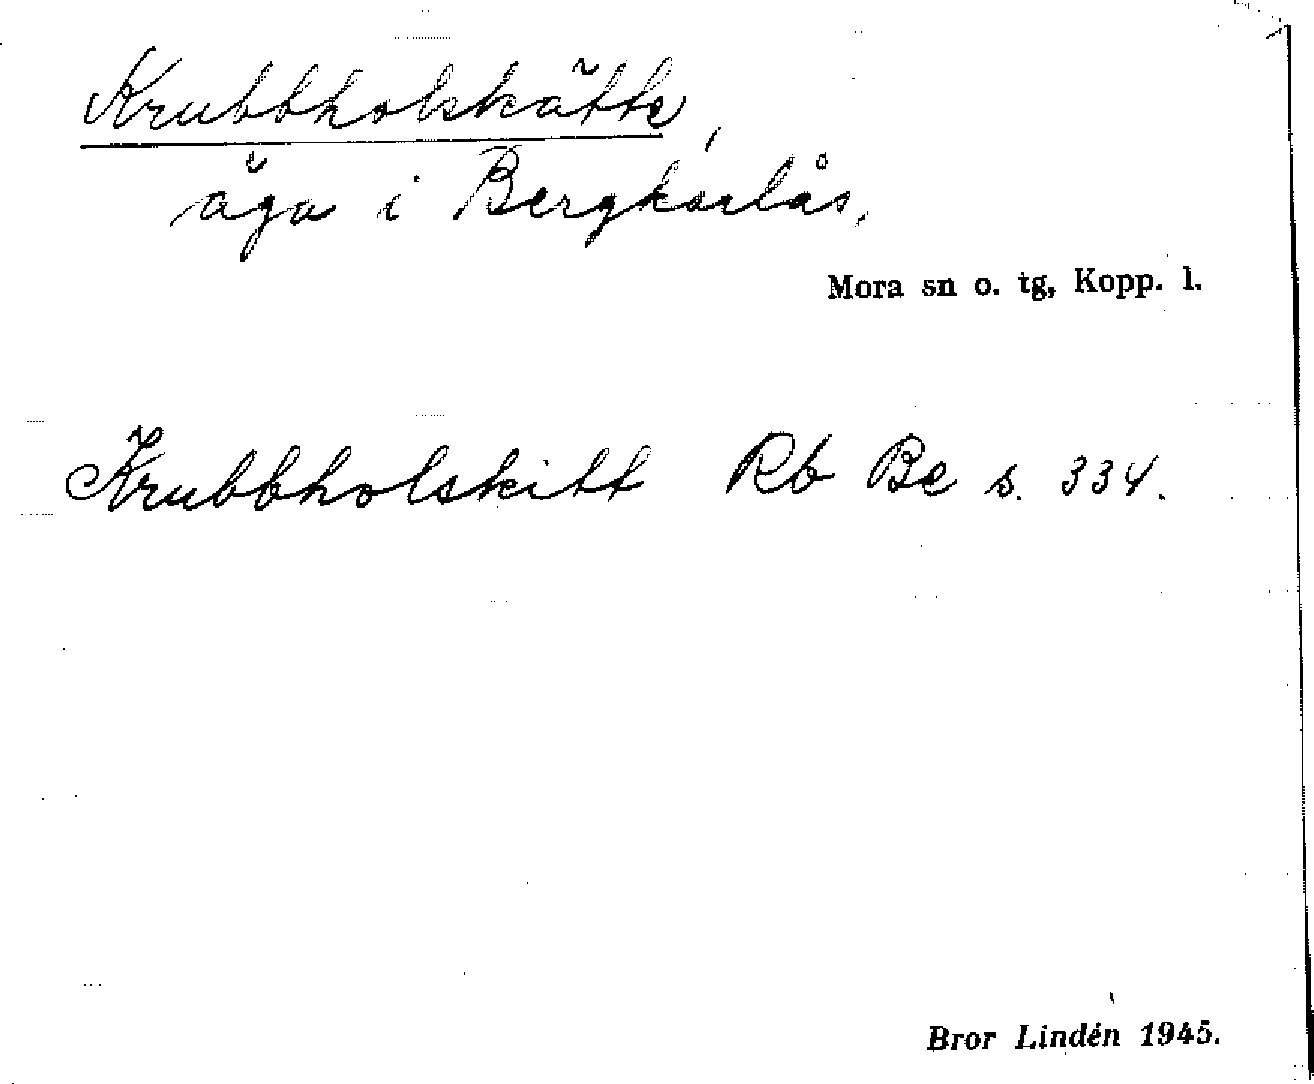 Krubbholskätte,
äga i Bergkarlås.
Mora sn o. tg, Kopp. l.
Krubbholskitt Rb Be s. 334.
Bror Lindén 1945.